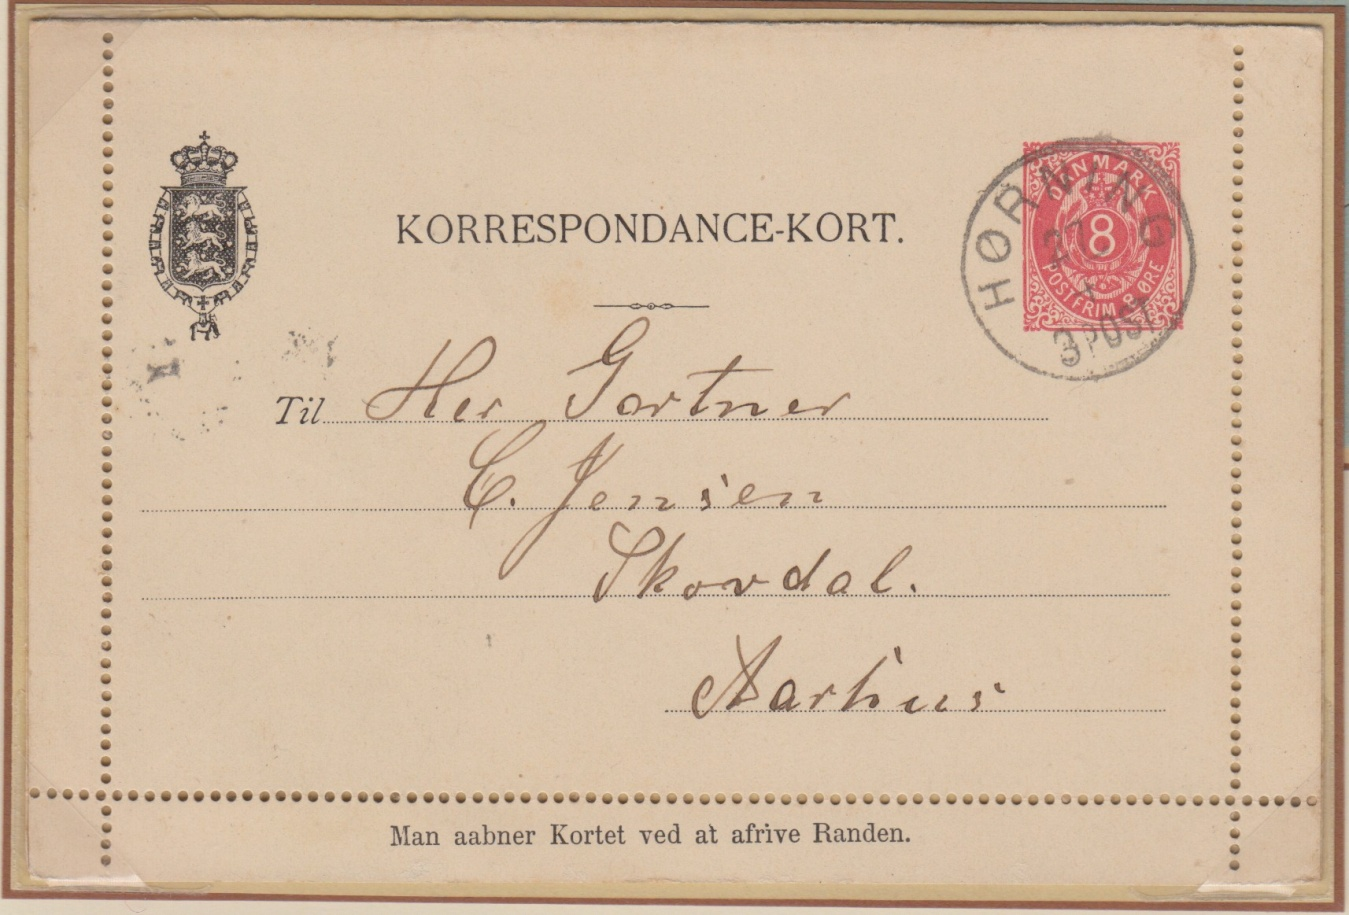 KORRESPONDANCE-KORT.
DANMARK
8
POSTFRIM. 8 ØRE
HØRNING
27
3 POST
Til Her Gartner
C. Jensen
Skovdal.
Aarhus
Man aabner Kortet ved at afrive Randen.